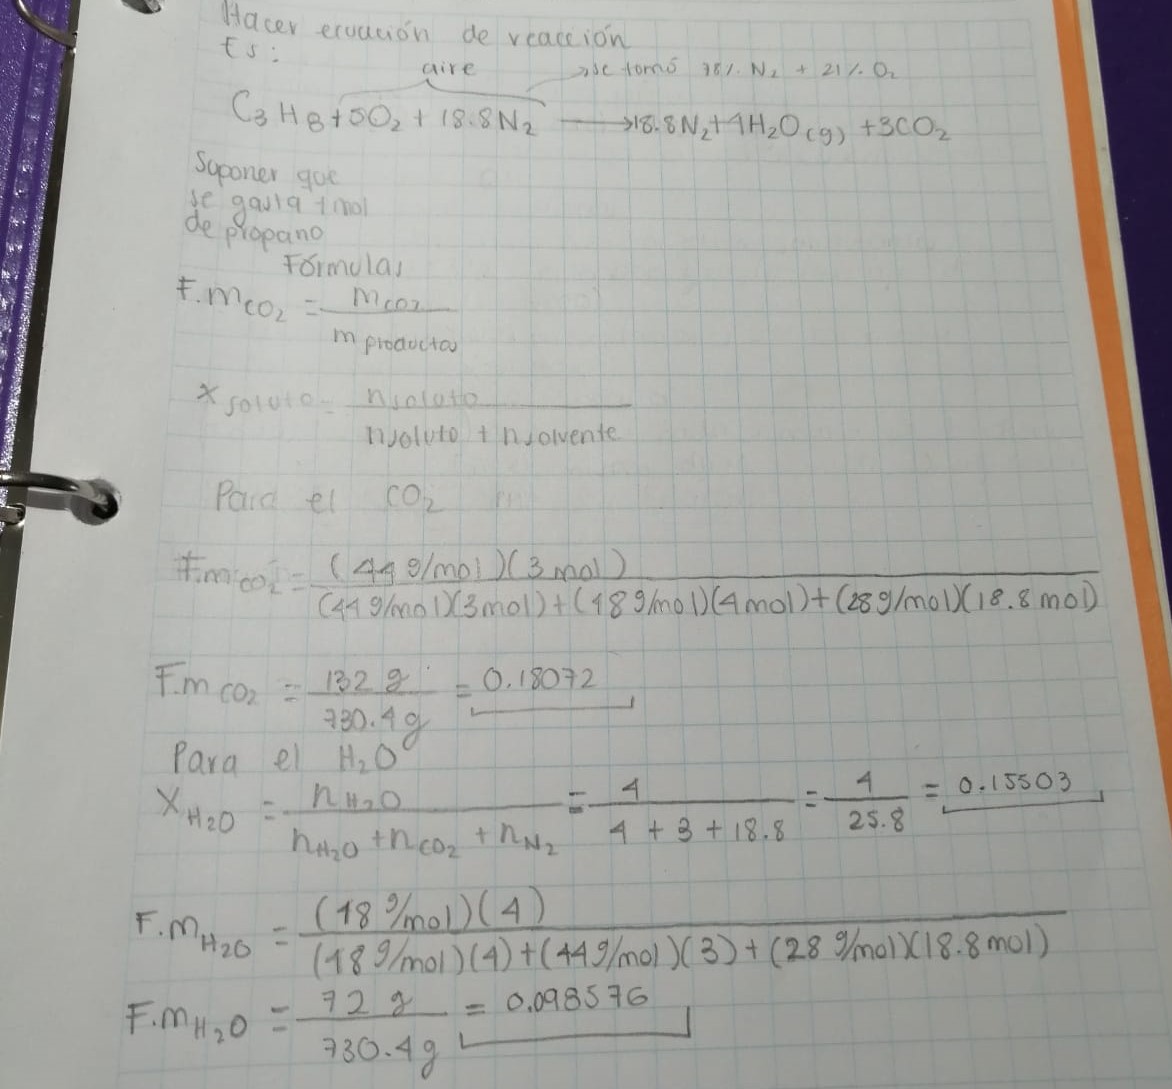 Hacer ecuación de reacción
Es:
aire
→se tomó 78% N₂ + 21% O₂
C₃H₈+5O₂ + 18.8N₂ ⟶ 18.8N₂+4H₂O(g) +3CO₂
Suponer que
se gasta 1 mol
de propano
Fórmulas
F.m CO₂ = m CO₂ / m productos
X soluto = n soluto / n soluto + n solvente
Para el CO₂
F.m CO₂ = (44 g/mol)(3 mol) / (44 g/mol)(3mol)+(18 g/mol)(4mol)+(28 g/mol)(18.8 mol)
F.m CO₂ = 132 g / 730.4 g = 0.18072
Para el H₂O
X H₂O = n H₂O / n H₂O + n CO₂ + n N₂ = 4 / 4 + 3 + 18.8 = 4 / 25.8 = 0.15503
F.m H₂O = (18 g/mol)(4) / (18 g/mol)(4)+(44 g/mol)(3)+(28 g/mol)(18.8 mol)
F.m H₂O = 72 g / 730.4 g = 0.098576